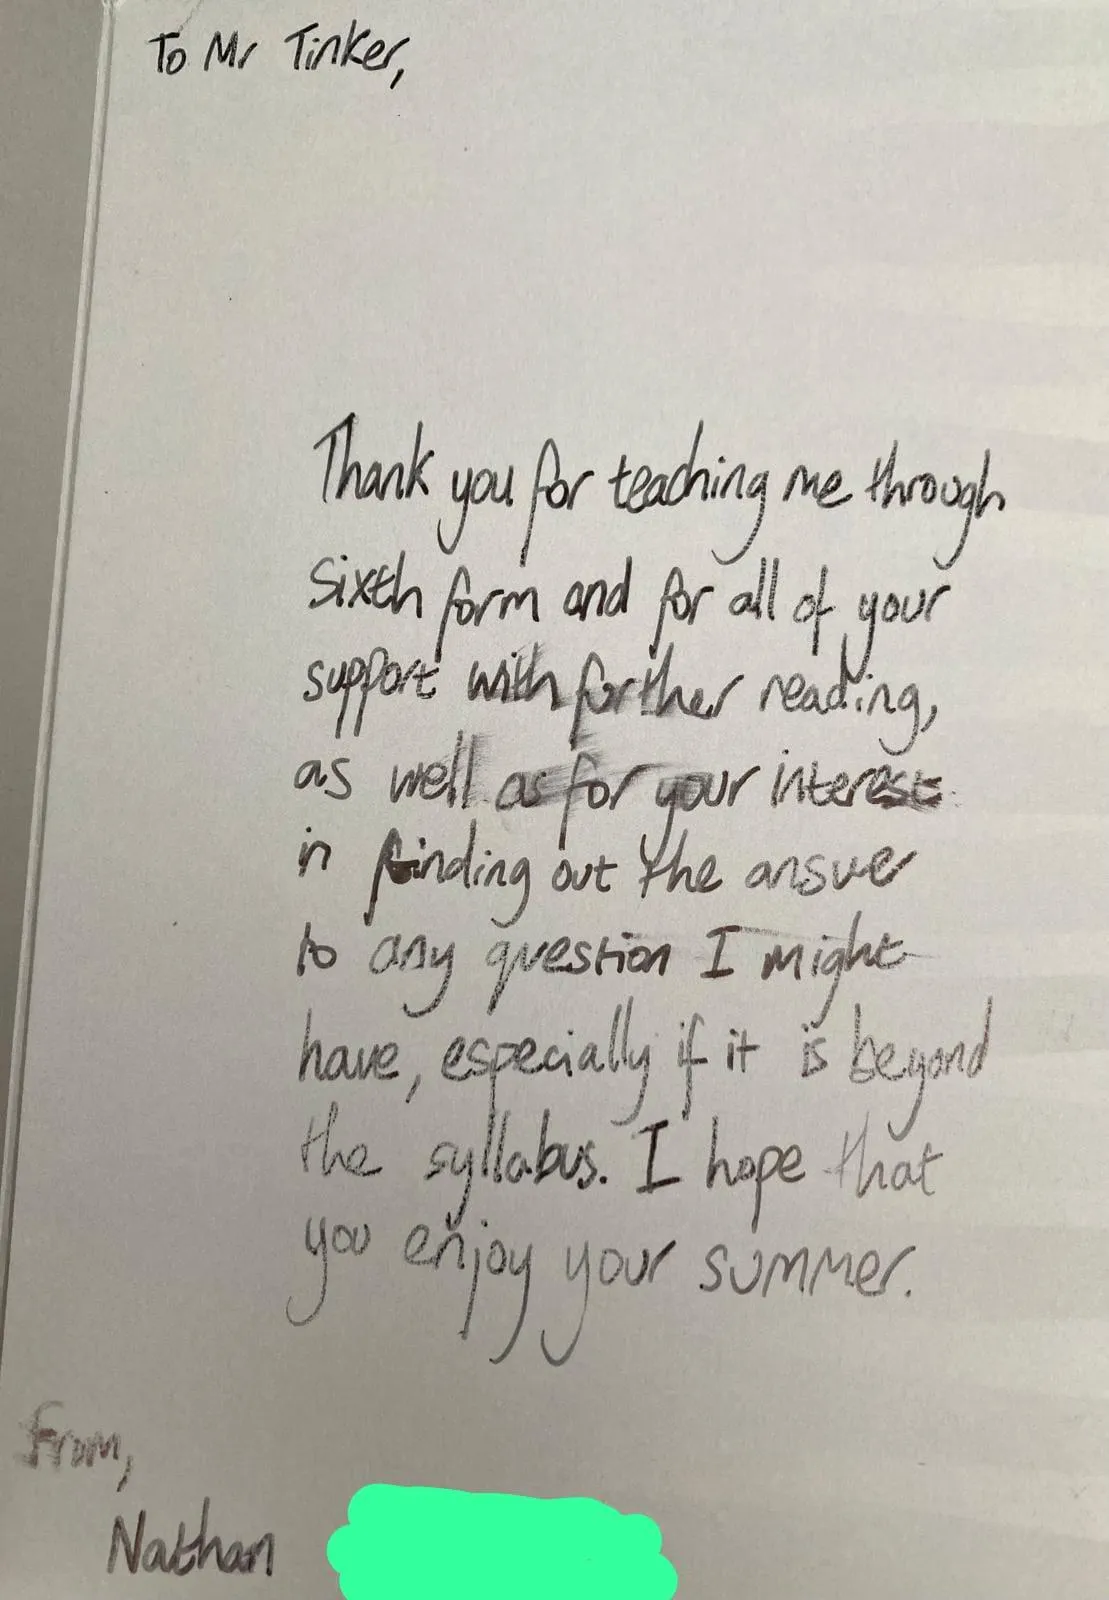 To Mr Tinker,
Thank you for teaching me through
sixth form and for all of your
support with further reading,
as well as for your interest
in finding out the answer
to any question I might
have, especially if it is beyond
the syllabus. I hope that
you enjoy your summer.
From,
Nathan